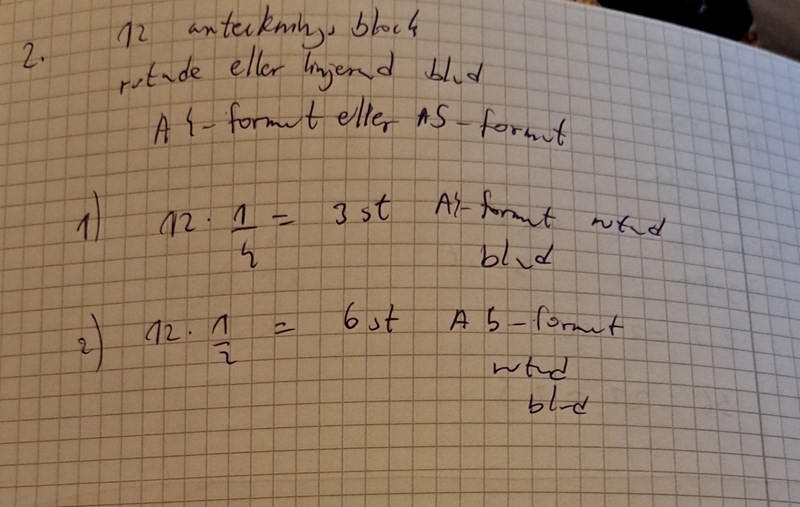 2. 12 antecknings block
rutade eller linjerad blad
A4-format eller A5-format
1) 12 · 1/4 = 3 st A4-format rutad
blad
2) 12 · 1/2 = 6 st A5-format
rutad
blad